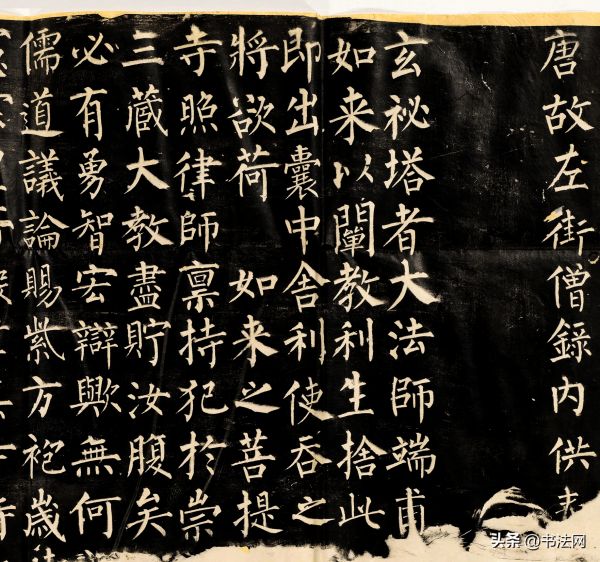 唐故左街僧錄内供
玄祕塔者大法師端甫
如来以闡教利生捨此
即出囊中舍利使吞之
將欲荷 如来之菩提
寺照律師禀持犯於崇
三藏大教盡貯汝腹矣
必有勇智宏辯歟無何
儒道議論賜紫方袍歲
头条 @书法网